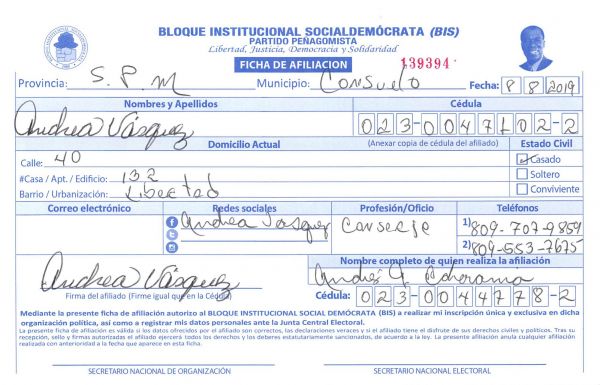 BLOQUE INSTITUCIONAL SOCIALDEMÓCRATA (BIS)
PARTIDO PEÑAGOMISTA
Libertad, Justicia, Democracia y Solidaridad
FICHA DE AFILIACION 139394
Provincia: S.P.M Municipio: Consuelo Fecha: 8 8 2019
Nombres y Apellidos Cédula
Andrea Vásquez 023-0047102-2
Domicilio Actual (Anexar copia de cédula del afiliado) Estado Civil
Calle: 40 Casado
#Casa / Apt. / Edificio: 132 Soltero
Barrio / Urbanización: Libertad Conviviente
Correo electrónico Redes sociales Profesión/Oficio Teléfonos
Andrea Vasquez Conserje 1) 809-707-9859
2) 809-553-7675
Nombre completo de quien realiza la afiliación
Andrea Vásquez Andres
Firma del afiliado (Firme igual que en la Cédula) Cédula: 023-0044778-2
Mediante la presente ficha de afiliación autorizo al BLOQUE INSTITUCIONAL SOCIAL DEMÓCRATA (BIS) a realizar mi inscripción única y exclusiva en dicha
organización política, así como a registrar mis datos personales ante la Junta Central Electoral.
La presente ficha de afiliación es válida si los datos ofrecidos por el afiliado son correctos, las declaraciones veraces y si el afiliado tiene el disfrute de sus derechos civiles y políticos. Tras su
recepción, sello y firmas autorizadas el afiliado ejercerá todos los derechos y los deberes estatutariamente sancionados, de acuerdo a la ley. La presente afiliación anula cualquier afiliación
realizada con anterioridad a la fecha que aparece en esta ficha.
SECRETARIO NACIONAL DE ORGANIZACIÓN SECRETARIO NACIONAL ELECTORAL